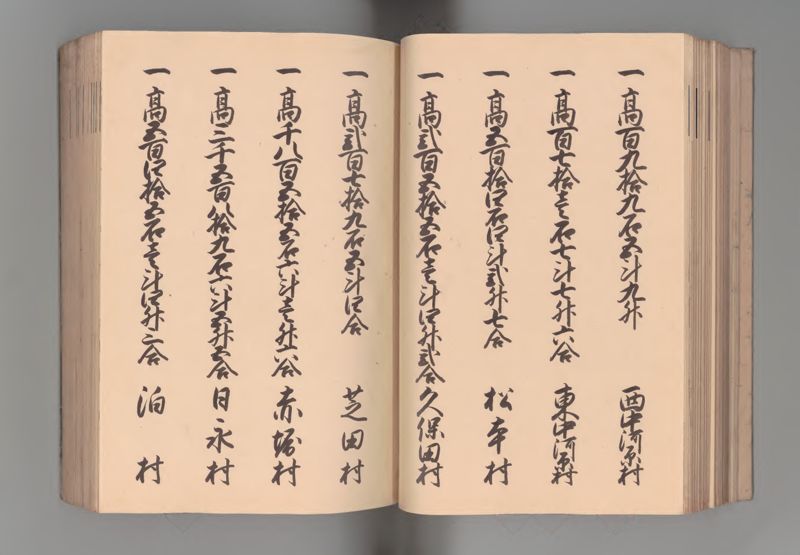 一 高百九拾九石五斗九升 西中河原村
一 高百七拾壱石七斗七升六合 東中河原村
一 高五百拾四石四斗弐升七合 松本村
一 高弐百五拾五石壱斗四升弐合 久保田村
一 高弐百七拾九石五斗四合 芝田村
一 高千八百五拾五石六斗壱升六合 赤堀村
一 高二千五百八拾九石六斗五升五合 日永村
一 高五百四拾五石壱斗四升二合 泊村